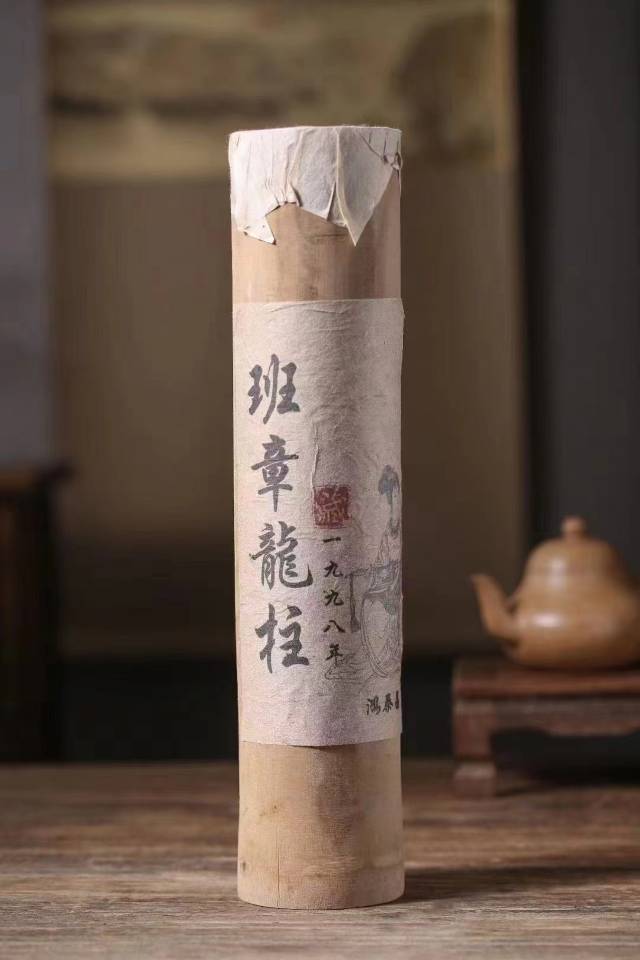 班章龍柱
一九九八年
鴻泰昌